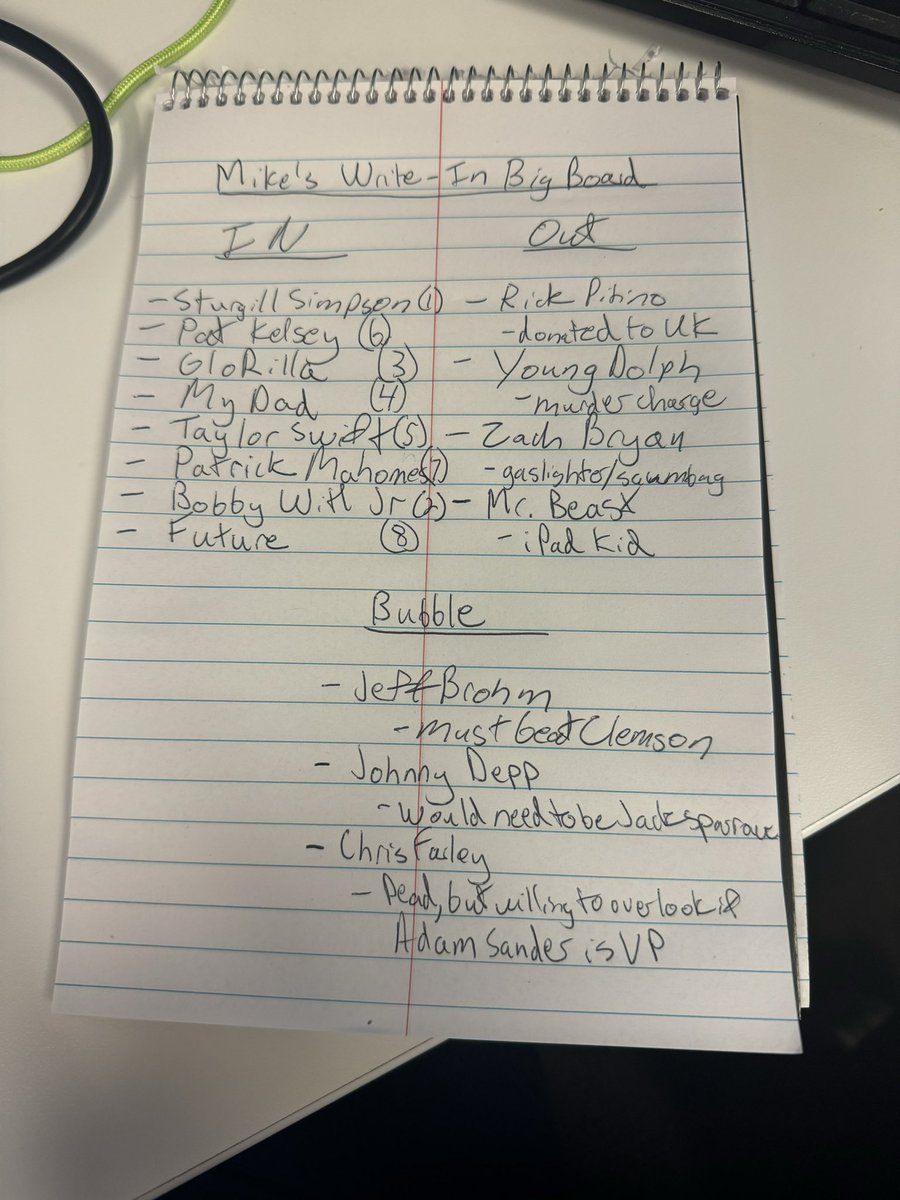 Mike's Write-In Big Board
IN
- Sturgill Simpson (1)
- Pat Kelsey (6)
- GloRilla (3)
- My Dad (4)
- Taylor Swift (5)
- Patrick Mahomes (7)
- Bobby Witt Jr (2)
- Future (8)
Out
- Rick Pitino
- donated to UK
- Young Dolph
- murder charge
- Zach Bryan
- gaslighter/scumbag
- Mr. Beast
- iPad kid
Bubble
- Jeff Brohm
- must beat Clemson
- Johnny Depp
- would need to be Jack Sparrow
- Chris Farley
- Dead, but willing to overlook if
Adam Sander is VP